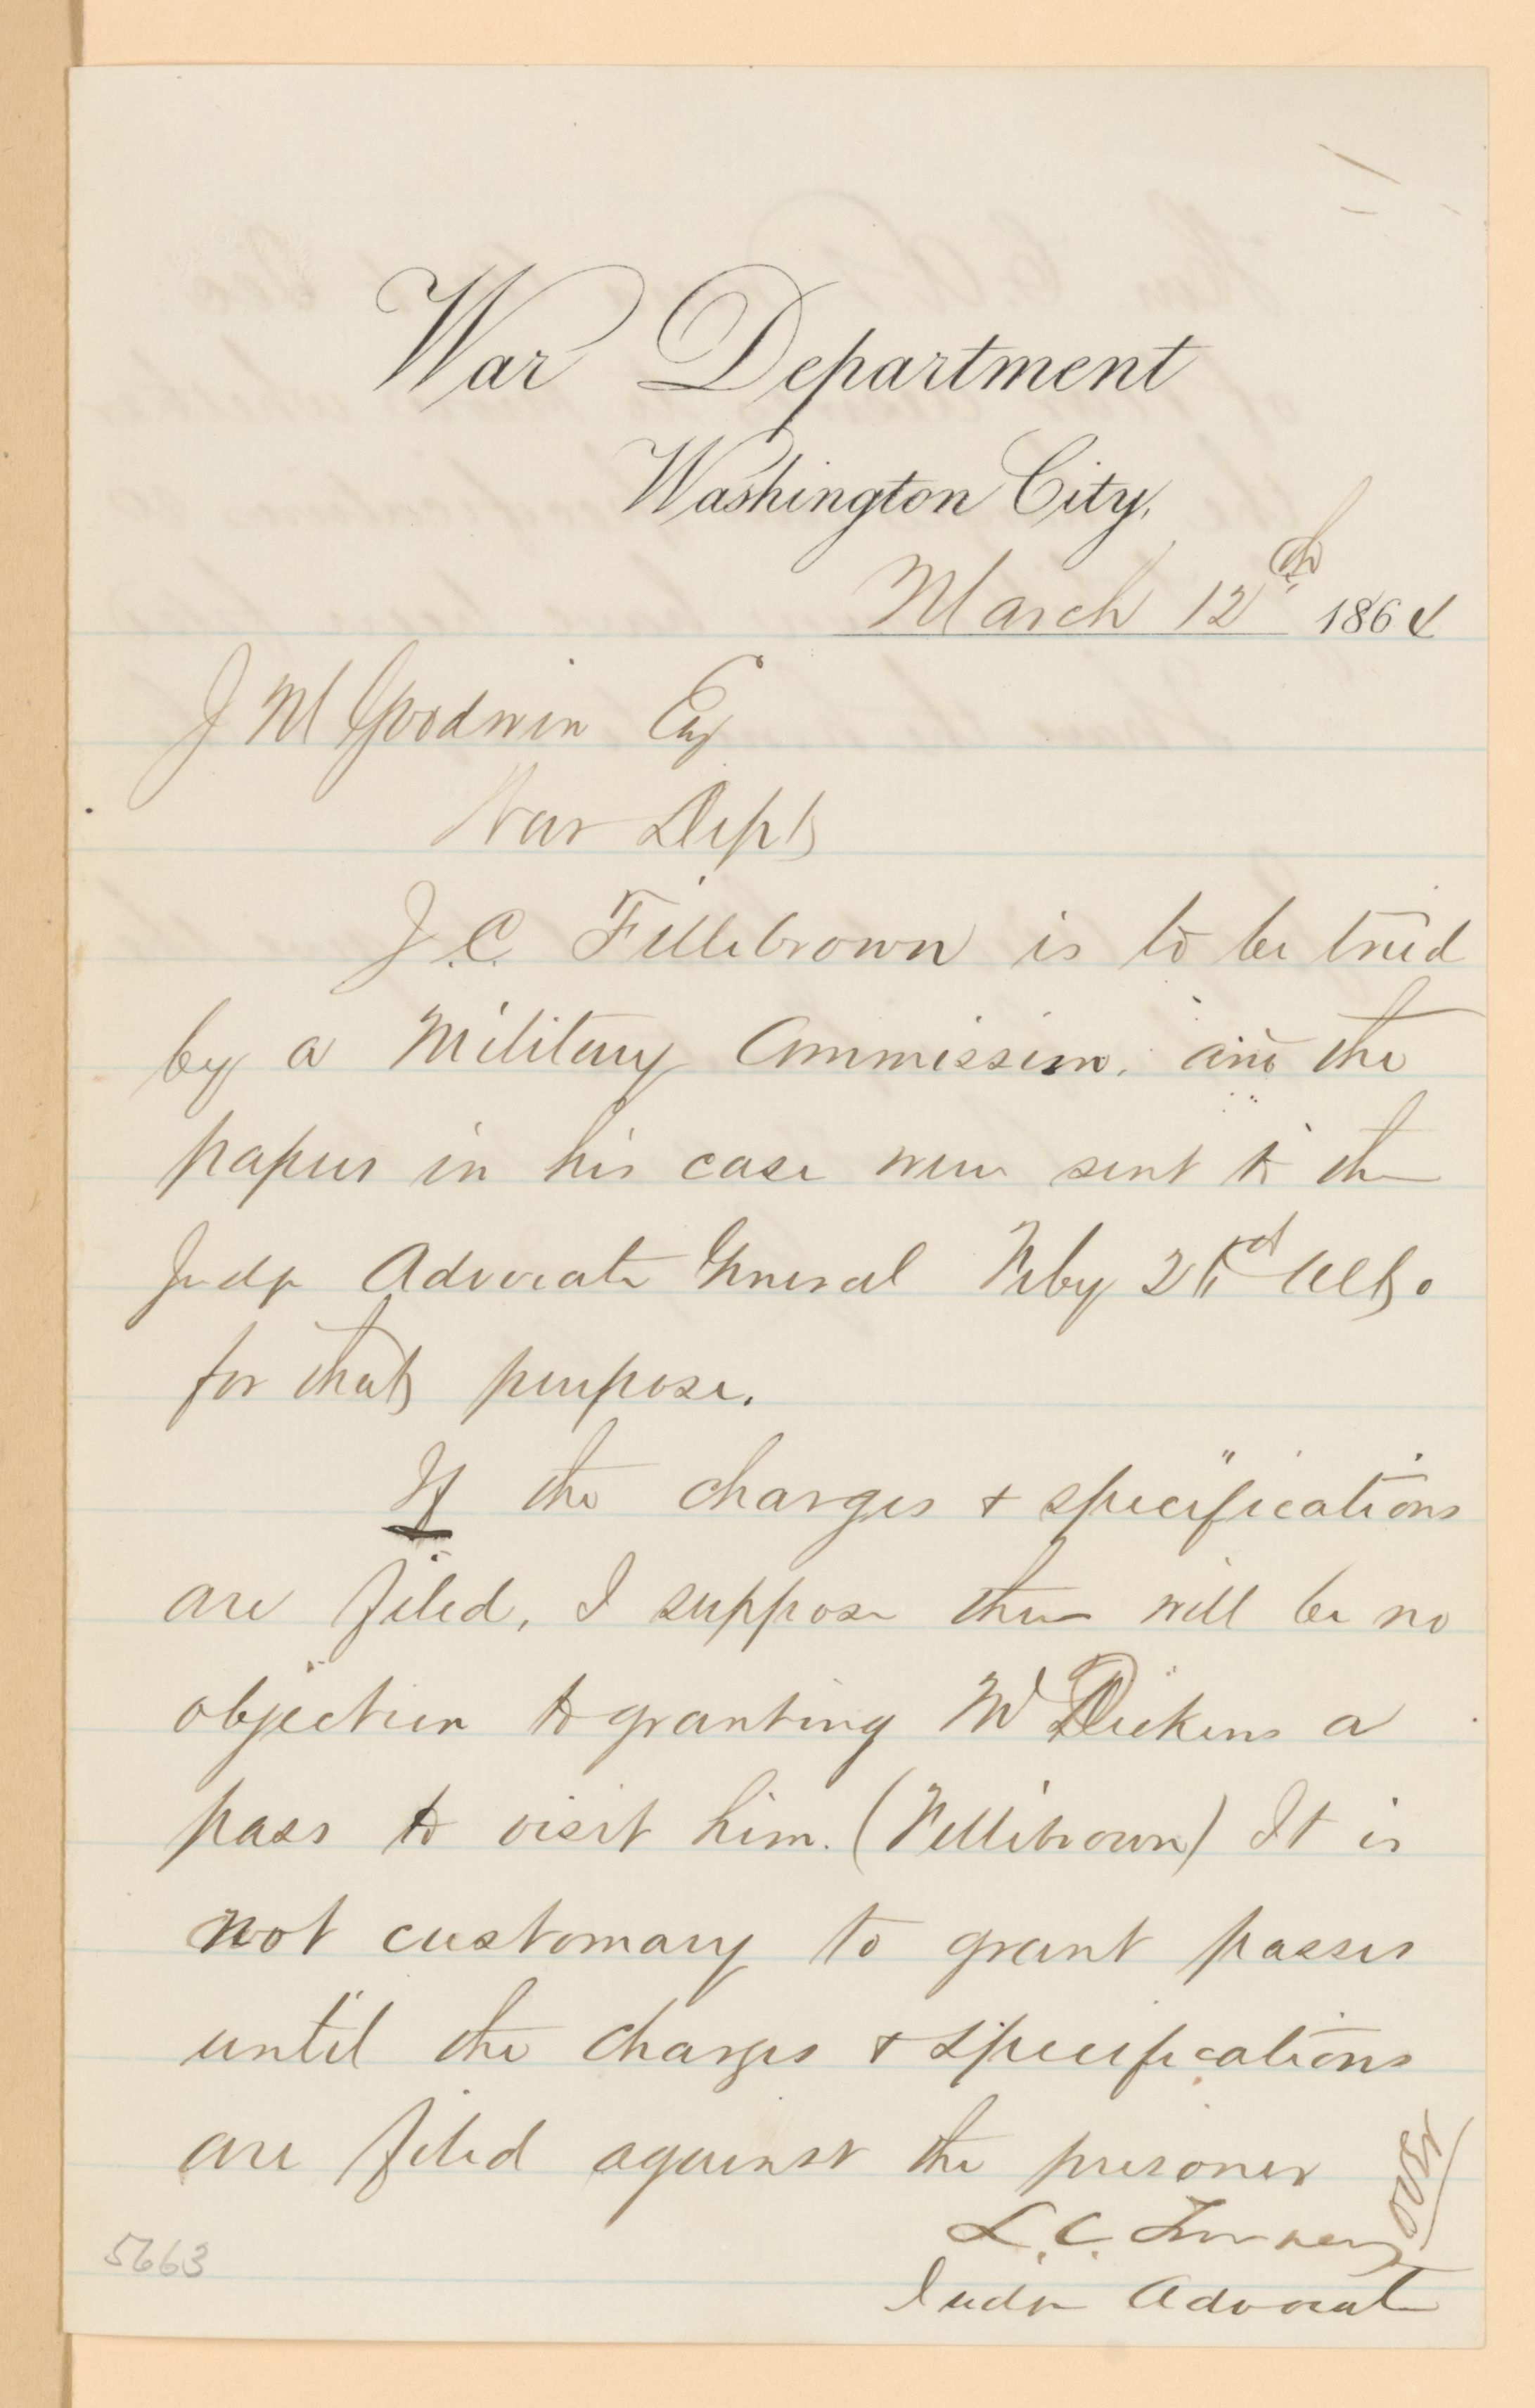 War Department
Washington City,
March 12th 1864
J M Goodwin Esq
War Dept
J. C. Fillebrown is to be tried
by a Military Commission, and the
papers in his case were sent to the
Judge Advocate General Feby Ult.
for that purpose.
If the charges + specifications
are filed, I suppose there will be no
objection to granting Mr Dickens a
pass to visit him. (Fillebrown) It is
not customary to grant passes
until the charges + specifications
are filed against the prisoner
over
L. C. Turner
Judge Advocate
5663